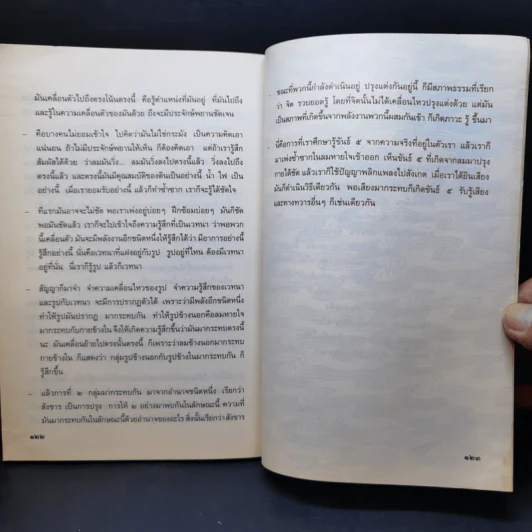 มันเคลื่อนตัวไปถึงตรงโน้นตรงนี้ คือรู้ตำแหน่งที่มันอยู่ ที่มันไปถึง
และรู้ในความเคลื่อนตัวของมันด้วย ถึงจะมีประจักษ์พยานชัดเจน
- คือบางคนไม่ยอมเข้าใจ ไปคิดว่ามันไม่ใช่กระมัง เป็นความคิดเอา
แน่นอน ถ้าไม่มีประจักษ์พยานให้เห็น ก็ต้องคิดเอา แต่ถ้าเรารู้สึก
สัมผัสได้ด้วย ว่าลมมันวิ่ง... ลมมันวิ่งลงไปตรงนี้แล้ว วิ่งลงไปถึง
ตรงนี้แล้ว และตรงนี้มันมีคุณสมบัติของดินเป็นอย่างนี้ น้ำ ไฟ เป็น
อย่างนี้ เมื่อเรายอมรับอย่างนี้ แล้วก็ทำซ้ำซาก เราก็จะรู้ได้ชัดใจ
- ที่แรกมันอาจจะไม่ชัด พอเราเพ่งอยู่บ่อยๆ ฝึกซ้อมบ่อยๆ มันก็ชัด
พอมันชัดแล้ว เราก็จะไปเข้าใจถึงความรู้สึกที่เป็นเวทนา ว่าพอพวก
นี้เคลื่อนตัว มันจะมีพลังงานอีกชนิดหนึ่งให้รู้สึกได้ว่า มีอาการอย่างนี้
รู้สึกอย่างนี้ นั่นคือเวทนาที่แฝงอยู่กับรูป รูปอยู่ที่ไหน ต้องมีเวทนา
อยู่ที่นั่น นี่เราก็รู้รูป แล้วก็เวทนา
- สัญญาก็มาจำ จำความเคลื่อนไหวของรูป จำความรู้สึกของเวทนา
และรูปกับเวทนา จะมีการปรากฏตัวได้ เพราะว่ามีพลังอีกชนิดหนึ่ง
ทำให้รูปมันปรากฏ มากระทบกัน ทำให้รูปข้างนอกคือลมหายใจ
มากระทบกับกายข้างใน จึงให้เกิดความรู้สึกขึ้นว่ามันมากระทบตรงนี้
นะ มันเคลื่อนย้ายไปตรงนั้นตรงนี้ ก็เพราะว่าลมข้างนอกมากระทบ
กายข้างใน ก็แสดงว่า กลุ่มรูปข้างนอกกับรูปข้างในมากระทบกัน ก็
รู้สึกขึ้น
- แล้วการที่ ๒ กลุ่มมากระทบกัน มาจากอำนาจชนิดหนึ่ง เรียกว่า
สังขาร เป็นการปรุง การให้ ๒ อย่างมาพบกันในลักษณะนี้ ความที่
มันมากระทบกันในลักษณะนี้ด้วยอำนาจของอะไร สิ่งนั้นเรียกว่าสังขาร
๑๒๒
- ขณะที่พวกนี้กำลังดำเนินอยู่ ปรุงแต่งกันอยู่นี้ ก็มีสภาพธรรมที่เรียก
ว่า จิต รวบยอดรู้ โดยที่จิตนั้นไม่ได้เคลื่อนไหวปรุงแต่งด้วย แต่มัน
เป็นสภาพที่เกิดขึ้นจากพลังงานพวกนี้ผสมกันเข้า ก็เกิดภาวะ รู้ ขึ้นมา
- นี่คือการที่เราศึกษารู้ขันธ์ ๕ จากความจริงที่อยู่ในตัวเรา แล้วเราก็
มาเพ่งซ้ำซากในลมหายใจเข้าออก เห็นขันธ์ ๕ ที่เกิดจากลมมาปรุง
กายได้ชัด แล้วเราก็ใช้ปัญญาพลิกแพลงไปสังเกต เมื่อเราได้ยินเสียง
มันก็ดำเนินวิธีเดียวกัน พอเสียงมากระทบก็เกิดขันธ์ ๕ รับรู้เสียง
และทางทวารอื่นๆ ก็เช่นเดียวกัน
๑๒๓